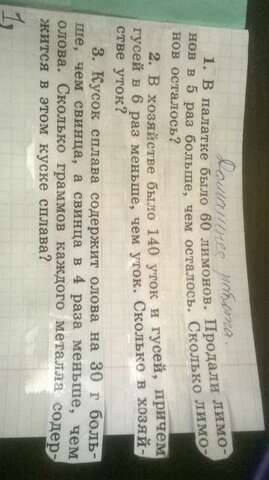 Домашняя работа
1. В палатке было 60 лимонов. Продали лимо-
нов в 5 раз больше, чем осталось. Сколько лимо-
нов осталось?
2. В хозяйстве было 140 уток и гусей, причем
гусей в 6 раз меньше, чем уток. Сколько в хозяй-
стве уток?
3. Кусок сплава содержит олова на 30 г боль-
ше, чем свинца, а свинца в 4 раза меньше, чем
олова. Сколько граммов каждого металла содер-
жится в этом куске сплава?
1)